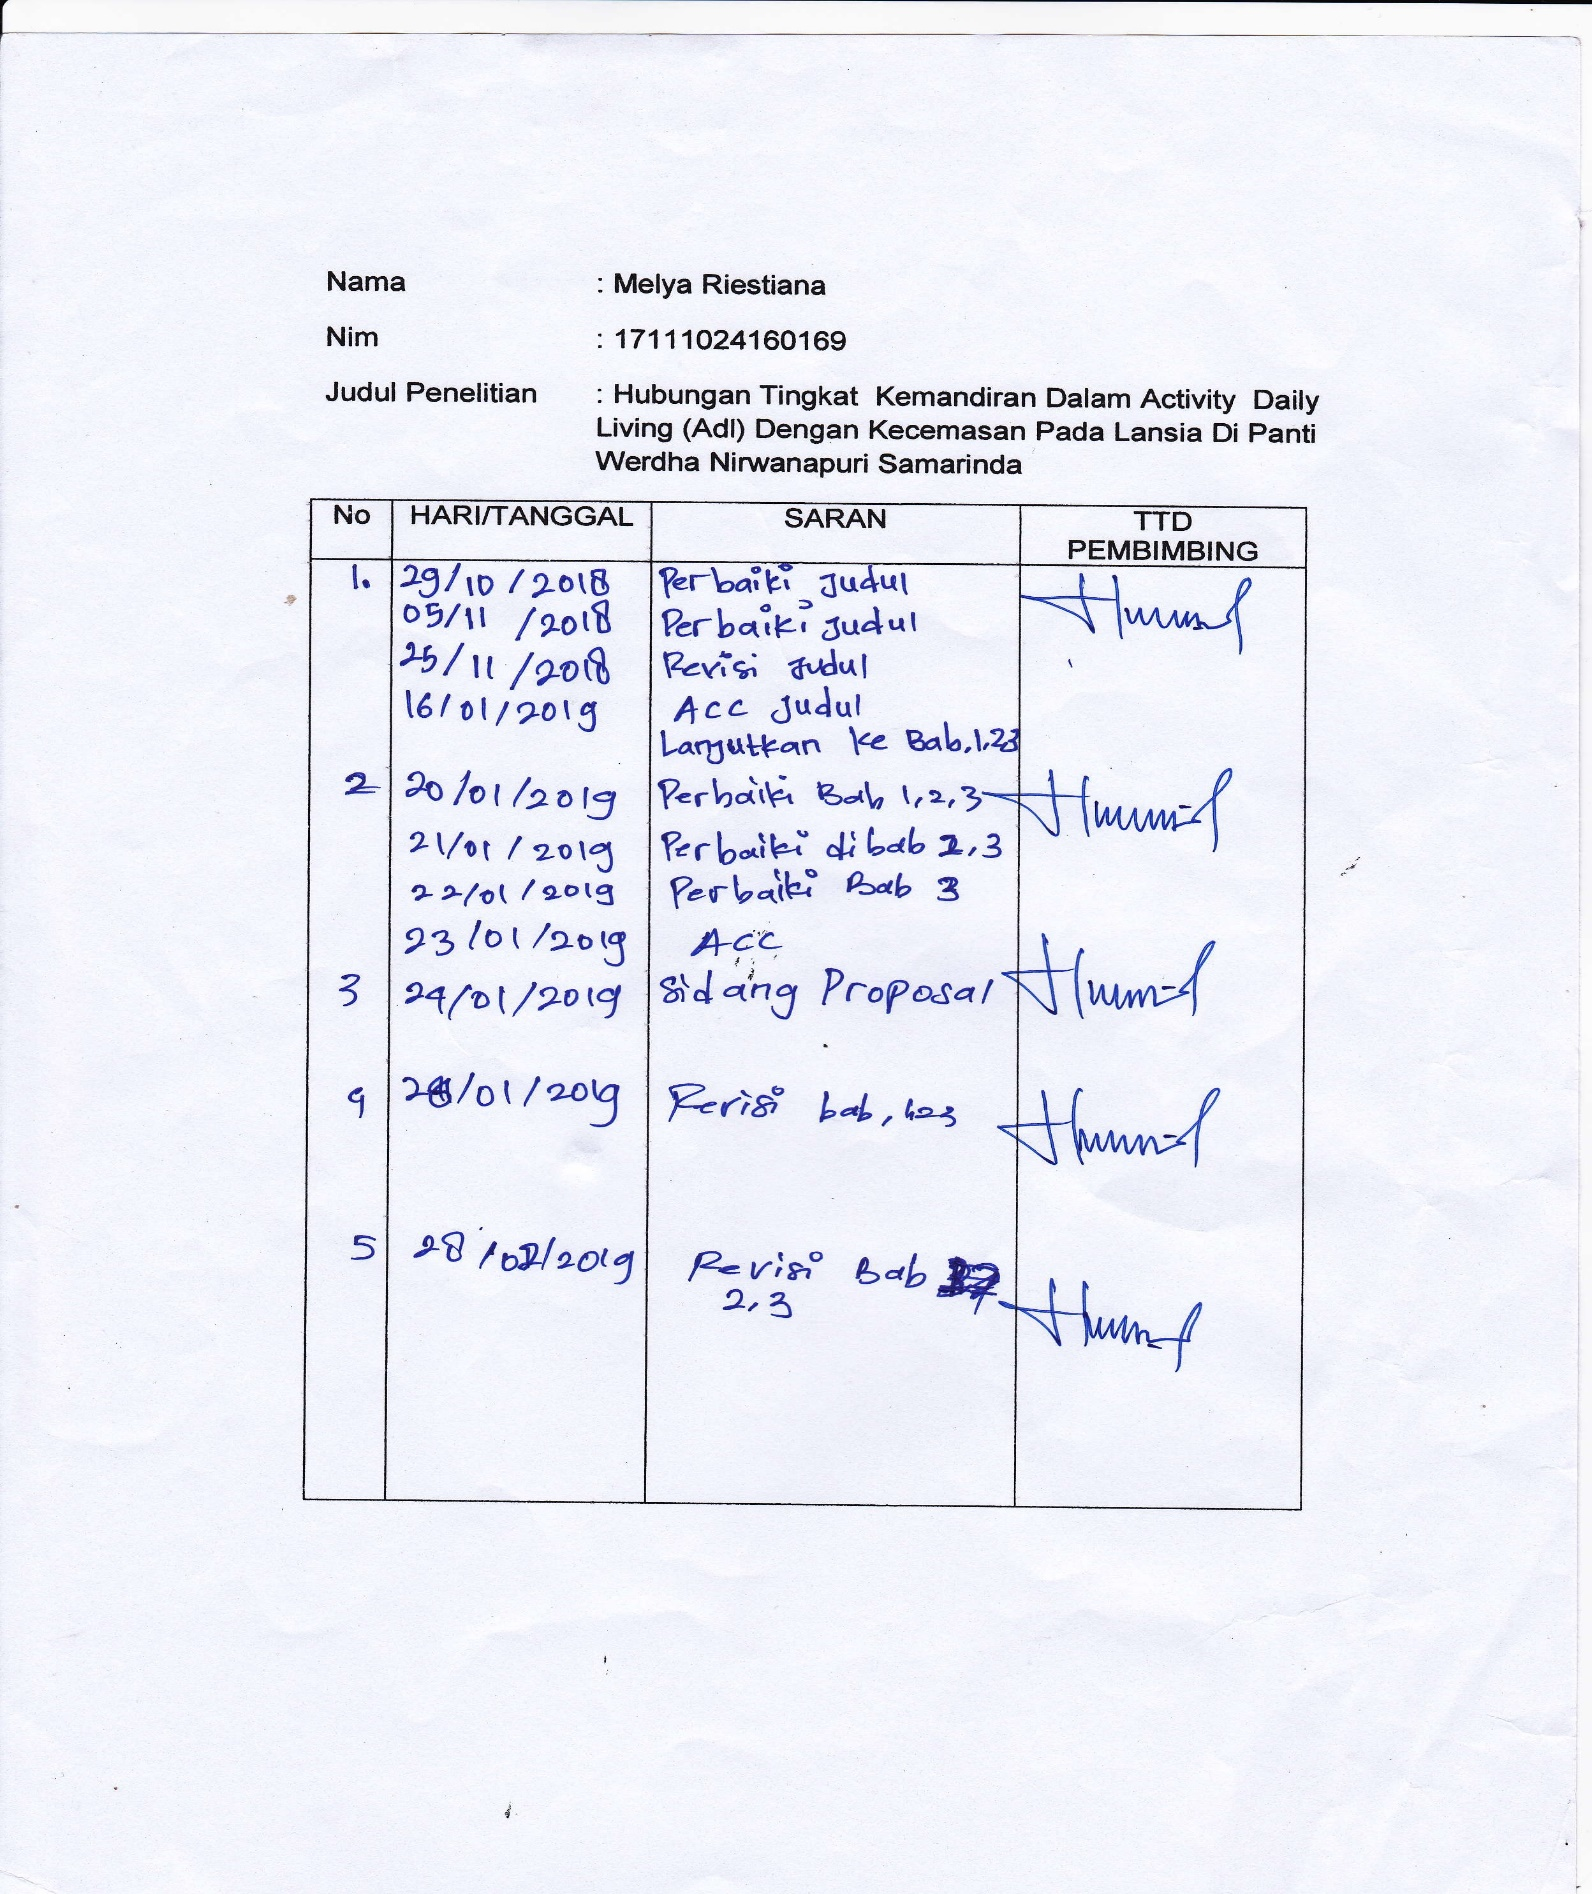 Nama : Melya Riestiana
Nim : 17111024160169
Judul Penelitian : Hubungan Tingkat Kemandiran Dalam Activity Daily
Living (Adl) Dengan Kecemasan Pada Lansia Di Panti
Werdha Nirwanapuri Samarinda
No HARI/TANGGAL SARAN TTD
PEMBIMBING
1. 29/10/2018 Perbaiki Judul
05/11/2018 Perbaiki Judul
25/11/2018 Revisi Judul
16/01/2019 Acc Judul
Lanjutkan ke Bab.1,23
2 20/01/2019 Perbaiki Bab 1,2,3
21/01/2019 Perbaiki dibab 2,3
22/01/2019 Perbaiki Bab 3
23/01/2019 Acc
3 24/01/2019 Sidang Proposal
4 /01/2019 Revisi bab, 123
5 28/ /2019 Revisi Bab
2,3